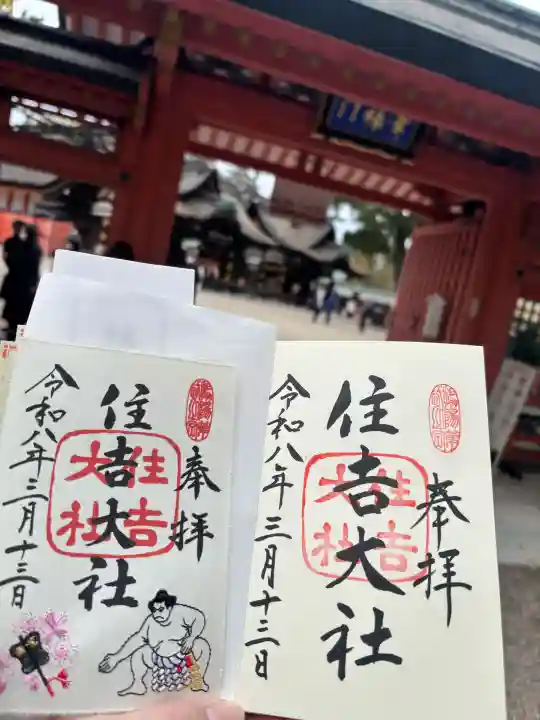 幸福門
奉拝
住吉大社
住吉大社
令和八年三月十三日
奉拝
住吉大社
住吉大社
令和八年三月十三日